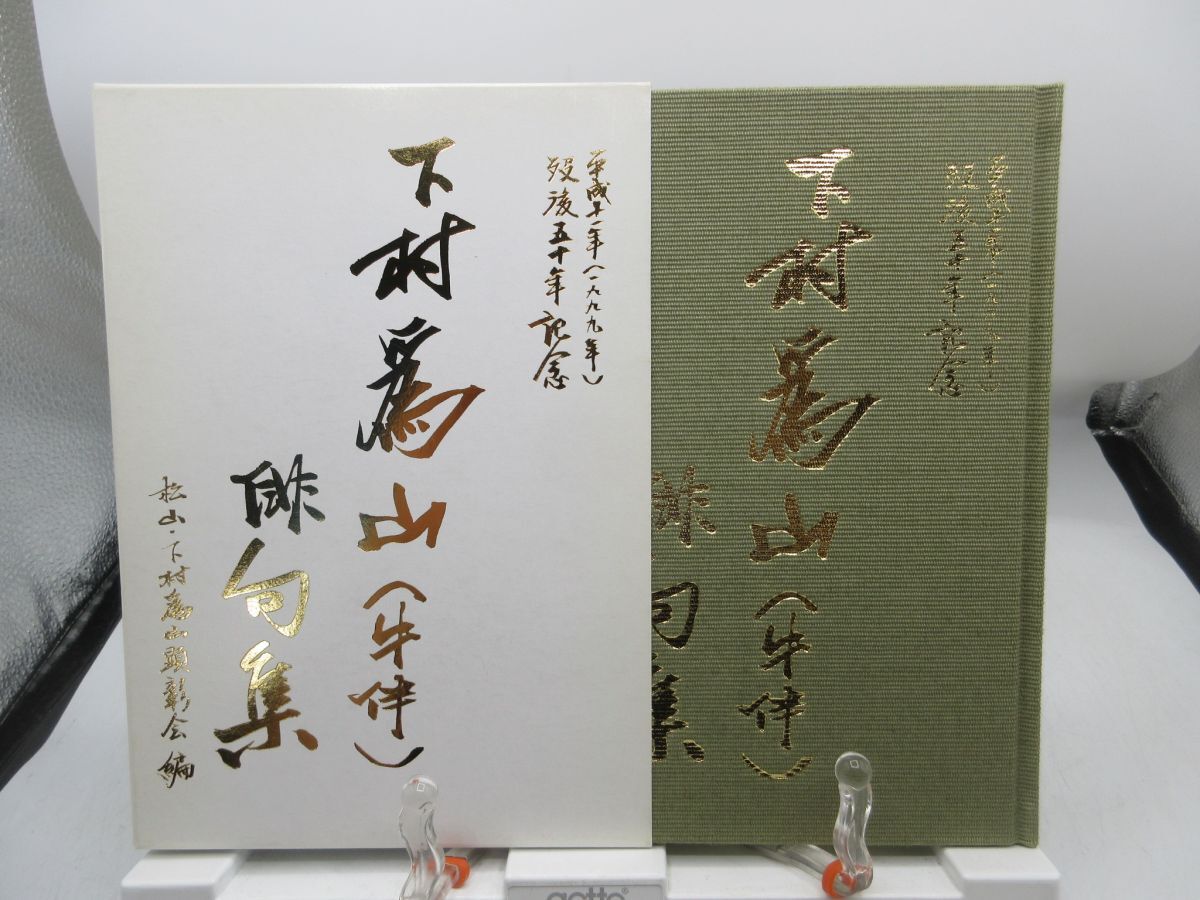 平成十一年(一九九九年)
歿後五十年記念
下村爲山(牛伴)
俳句集
松山・下村爲山顕彰会編
平成十一年(一九九九年)
歿後五十年記念
下村爲山(牛伴)
俳句集